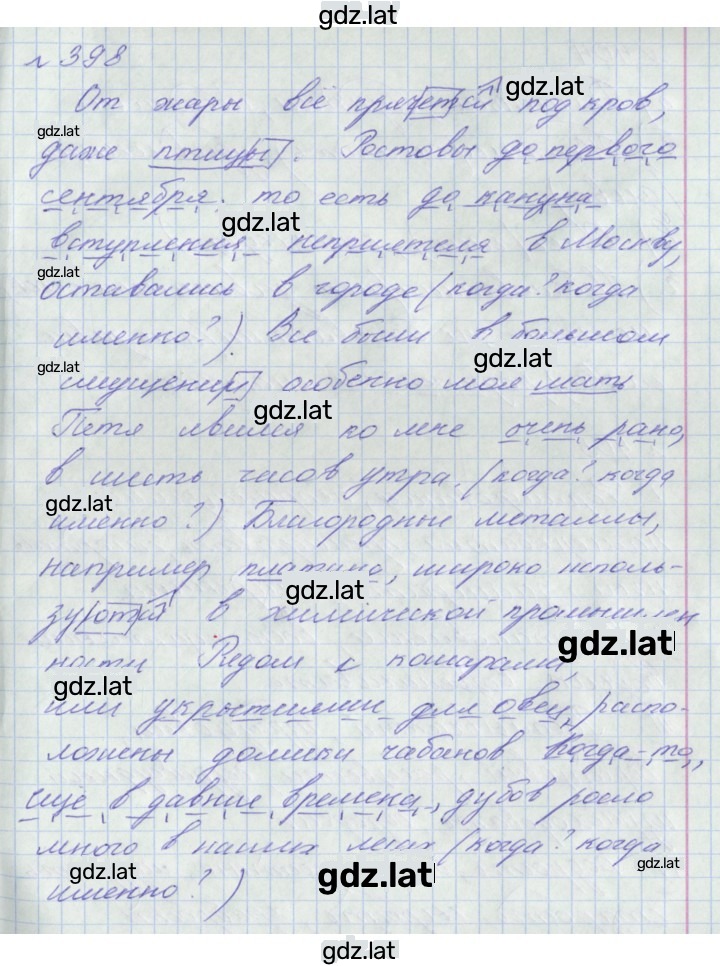 gdz.lat
№ 398
От жары всё прячется под кров,
gdz.lat
gdz.lat
даже птицы. Ростовы до первого
сентября. то есть до кануна
gdz.lat
вступления неприятеля в Москву,
gdz.lat
оставались в городе (когда? когда
именно?) Все были в большом
gdz.lat
gdz.lat
смущении особенно моя мать
gdz.lat
Петя явился ко мне очень рано,
в шесть часов утра. (когда? когда
gdz.lat
именно?) Благородные металлы,
например платина, широко исполь-
gdz.lat
зуются в химической промышлен
gdz.lat
ности Рядом с кошарами,
gdz.lat
или укрытиями для овец, распо-
ложены домики чабанов Когда-то,
ещё в давние времена, дубов росло
много в наших лесах (когда? когда
gdz.lat
gdz.lat
gdz.lat
именно?)
gdz.lat